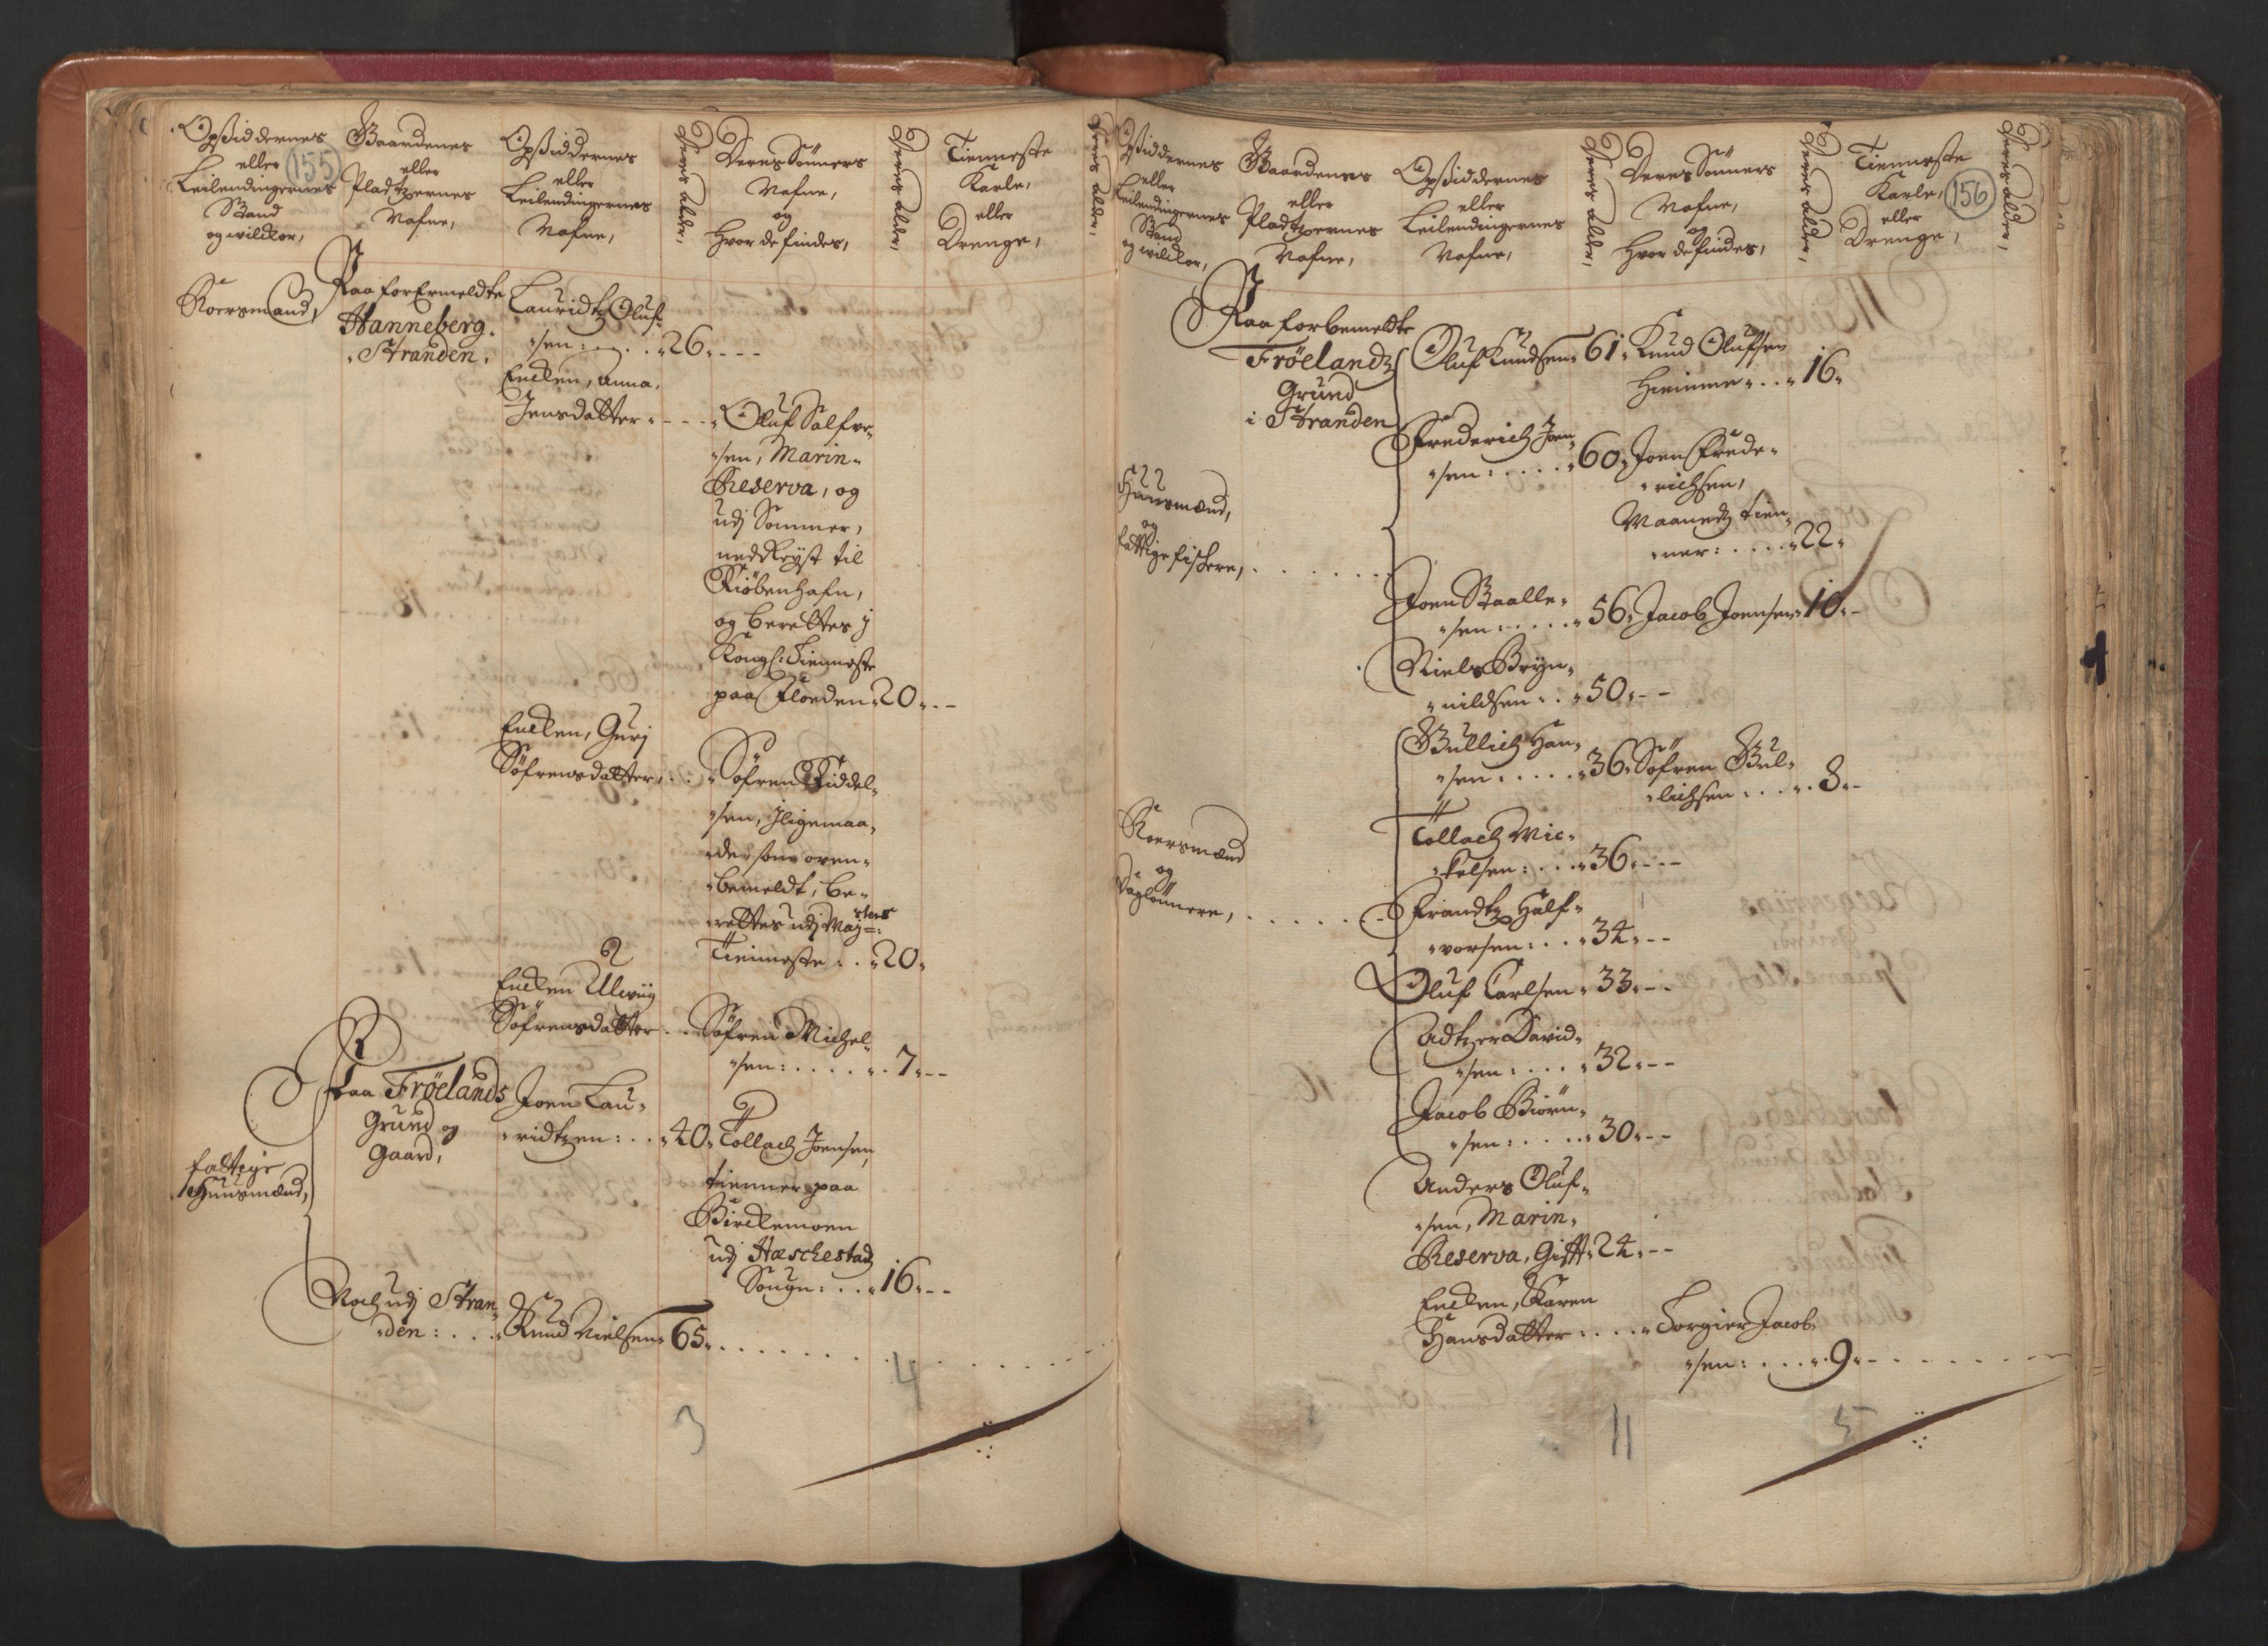 155
Opsiddernes
eller
Leilendingernes
Stand
og wilckor,
Gaardenes
eller
Pladtzernes
Nafne,
Opsiddernes
eller
Leilendingernes
Nafne,
Deres alder,
Deres Sönners
Nafne,
og
Hvor de findes,
Deres alder,
Tienneste
Karle,
eller
Drenge,
Deres alder,
Koersmænd,
Paa forErmeldte
Hanneberg.
Stranden.
Lauridtz Oluf-
sen: . . . 26. - - -
Encken, Anna
Jensdatter - - -
Oluf Salfve-
sen, Marin-
Reserva, og
udj Sommer,
nedReyst til
Kiöbenhafn,
og berettes j
Kongl: Tienneste
paa Floeden 20. - -
Encken, Gurj
Söfrensdatter, . .
Söfren Kiddel-
sen, iligemaa-
de som oven-
bemeldt, be-
rettes udj Maysters
Tienneste . . 20.
Encken Ulwiig
Söfrensdatter . .
Söfren Michel-
sen: . . . . . 7. - -
fattige
Huusmænd,
Paa Fröelands
Grund og
Gaard,
Joen Lau-
ridtzen: . . 40.
Tollach Joensen
tienner paa
Birckemoen
udj Hæschestad
Sougn: . . 16. - -
Noch udj Stran-
den: . . .
Knud Nielsen 65. . . . . . . .
3
4
156
Opsiddernes
eller
Leilendingernes
Stand
og wilckor,
Gaardenes
eller
Pladtzernes
Nafne,
Opsiddernes
eller
Leilendingernes
Nafne,
Deres alder,
Deres Sönners
Nafne,
og
Hvor de findes,
Deres alder,
Tienneste
Karle,
eller
Drenge,
Deres alder,
Paa forbemeldte
Fröelandz
Grund
i Stranden
Oluf Knudsen 61.
Knud Olufsen
Hiemme . . . 16.
Frederich Joen-
sen: . . . . . 60.
Joen Frede-
richsen,
Maanedz tien-
ner: . . . . 22.
Huusmænd,
og
fattige fischere, . . . . . .
Joen Staalle-
sen: . . . . . 56.
Jacob Joensen 10. -
Niels Bryn-
nildsen: . . 50. - -
Gullich Han-
sen . . . . . 36.
Söfren Gul-
lichsen . . . . 8. -
Koersmænd
og
Daglönnere, . . . . . . .
Tollach Mic-
kelsen: . . . 36. - - -
Frandtz Half-
vorsen: . . . 34. - -
Oluf Carlsen 33. - -
Adtzer David-
sen: . . . . 32. - -
Jacob Biörn-
sen: . . . . . 30. - -
Anders Oluf-
sen, Marin-
Reserva, Gifft 24. - -
Encken, Karen
Hansdatter: . . . .
Torgier Jacob-
sen: . . . . 9. - . . . . .
11
5